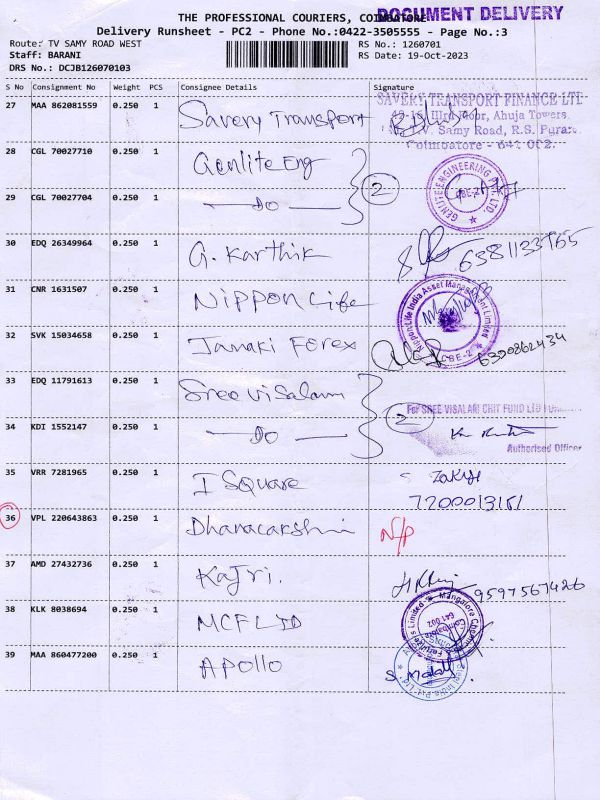 DOCUMENT DELIVERY
THE PROFESSIONAL COURIERS, COIMBATORE
Delivery Runsheet - PC2 - Phone No.:0422-3505555 - Page No.:3
Route: TV SAMY ROAD WEST
Staff: BARANI
DRS No.: DCJB126070103
RS No.: 1260701
RS Date: 19-Oct-2023
S No Consignment No Weight PCS Consignee Details Signature
27 MAA 862081559 0.250 1 Savery Transport
SAVERY TRANSPORT FINANCE LTD
IIIrd Floor, Ahuja Towers,
V. Samy Road, R.S. Puram,
Coimbatore - 641 002.
28 CGL 70027710 0.250 1 Genlite Eng 2
GENLITE ENGINEERING P. LTD.
29 CGL 70027704 0.250 1 — Do —
30 EDQ 26349964 0.250 1 G. Karthik
31 CNR 1631507 0.250 1 Nippon Life
Nippon Life India Asset Management Limited
CBE-2
32 SVK 15034658 0.250 1 Janaki Forex 6380862434
33 EDQ 11791613 0.250 1 Sree Visalam 2
For SREE VISALAM CHIT FUND LTD
34 KDI 1552147 0.250 1 — Do —
Authorised Officer
35 VRR 7281965 0.250 1 I Square
36 VPL 220643863 0.250 1 N/P
37 AMD 27432736 0.250 1 Kajri. 9597567426
38 KLK 8038694 0.250 1 MCF LTD
Coimbatore
641 002
39 MAA 860477200 0.250 1 APOLLO